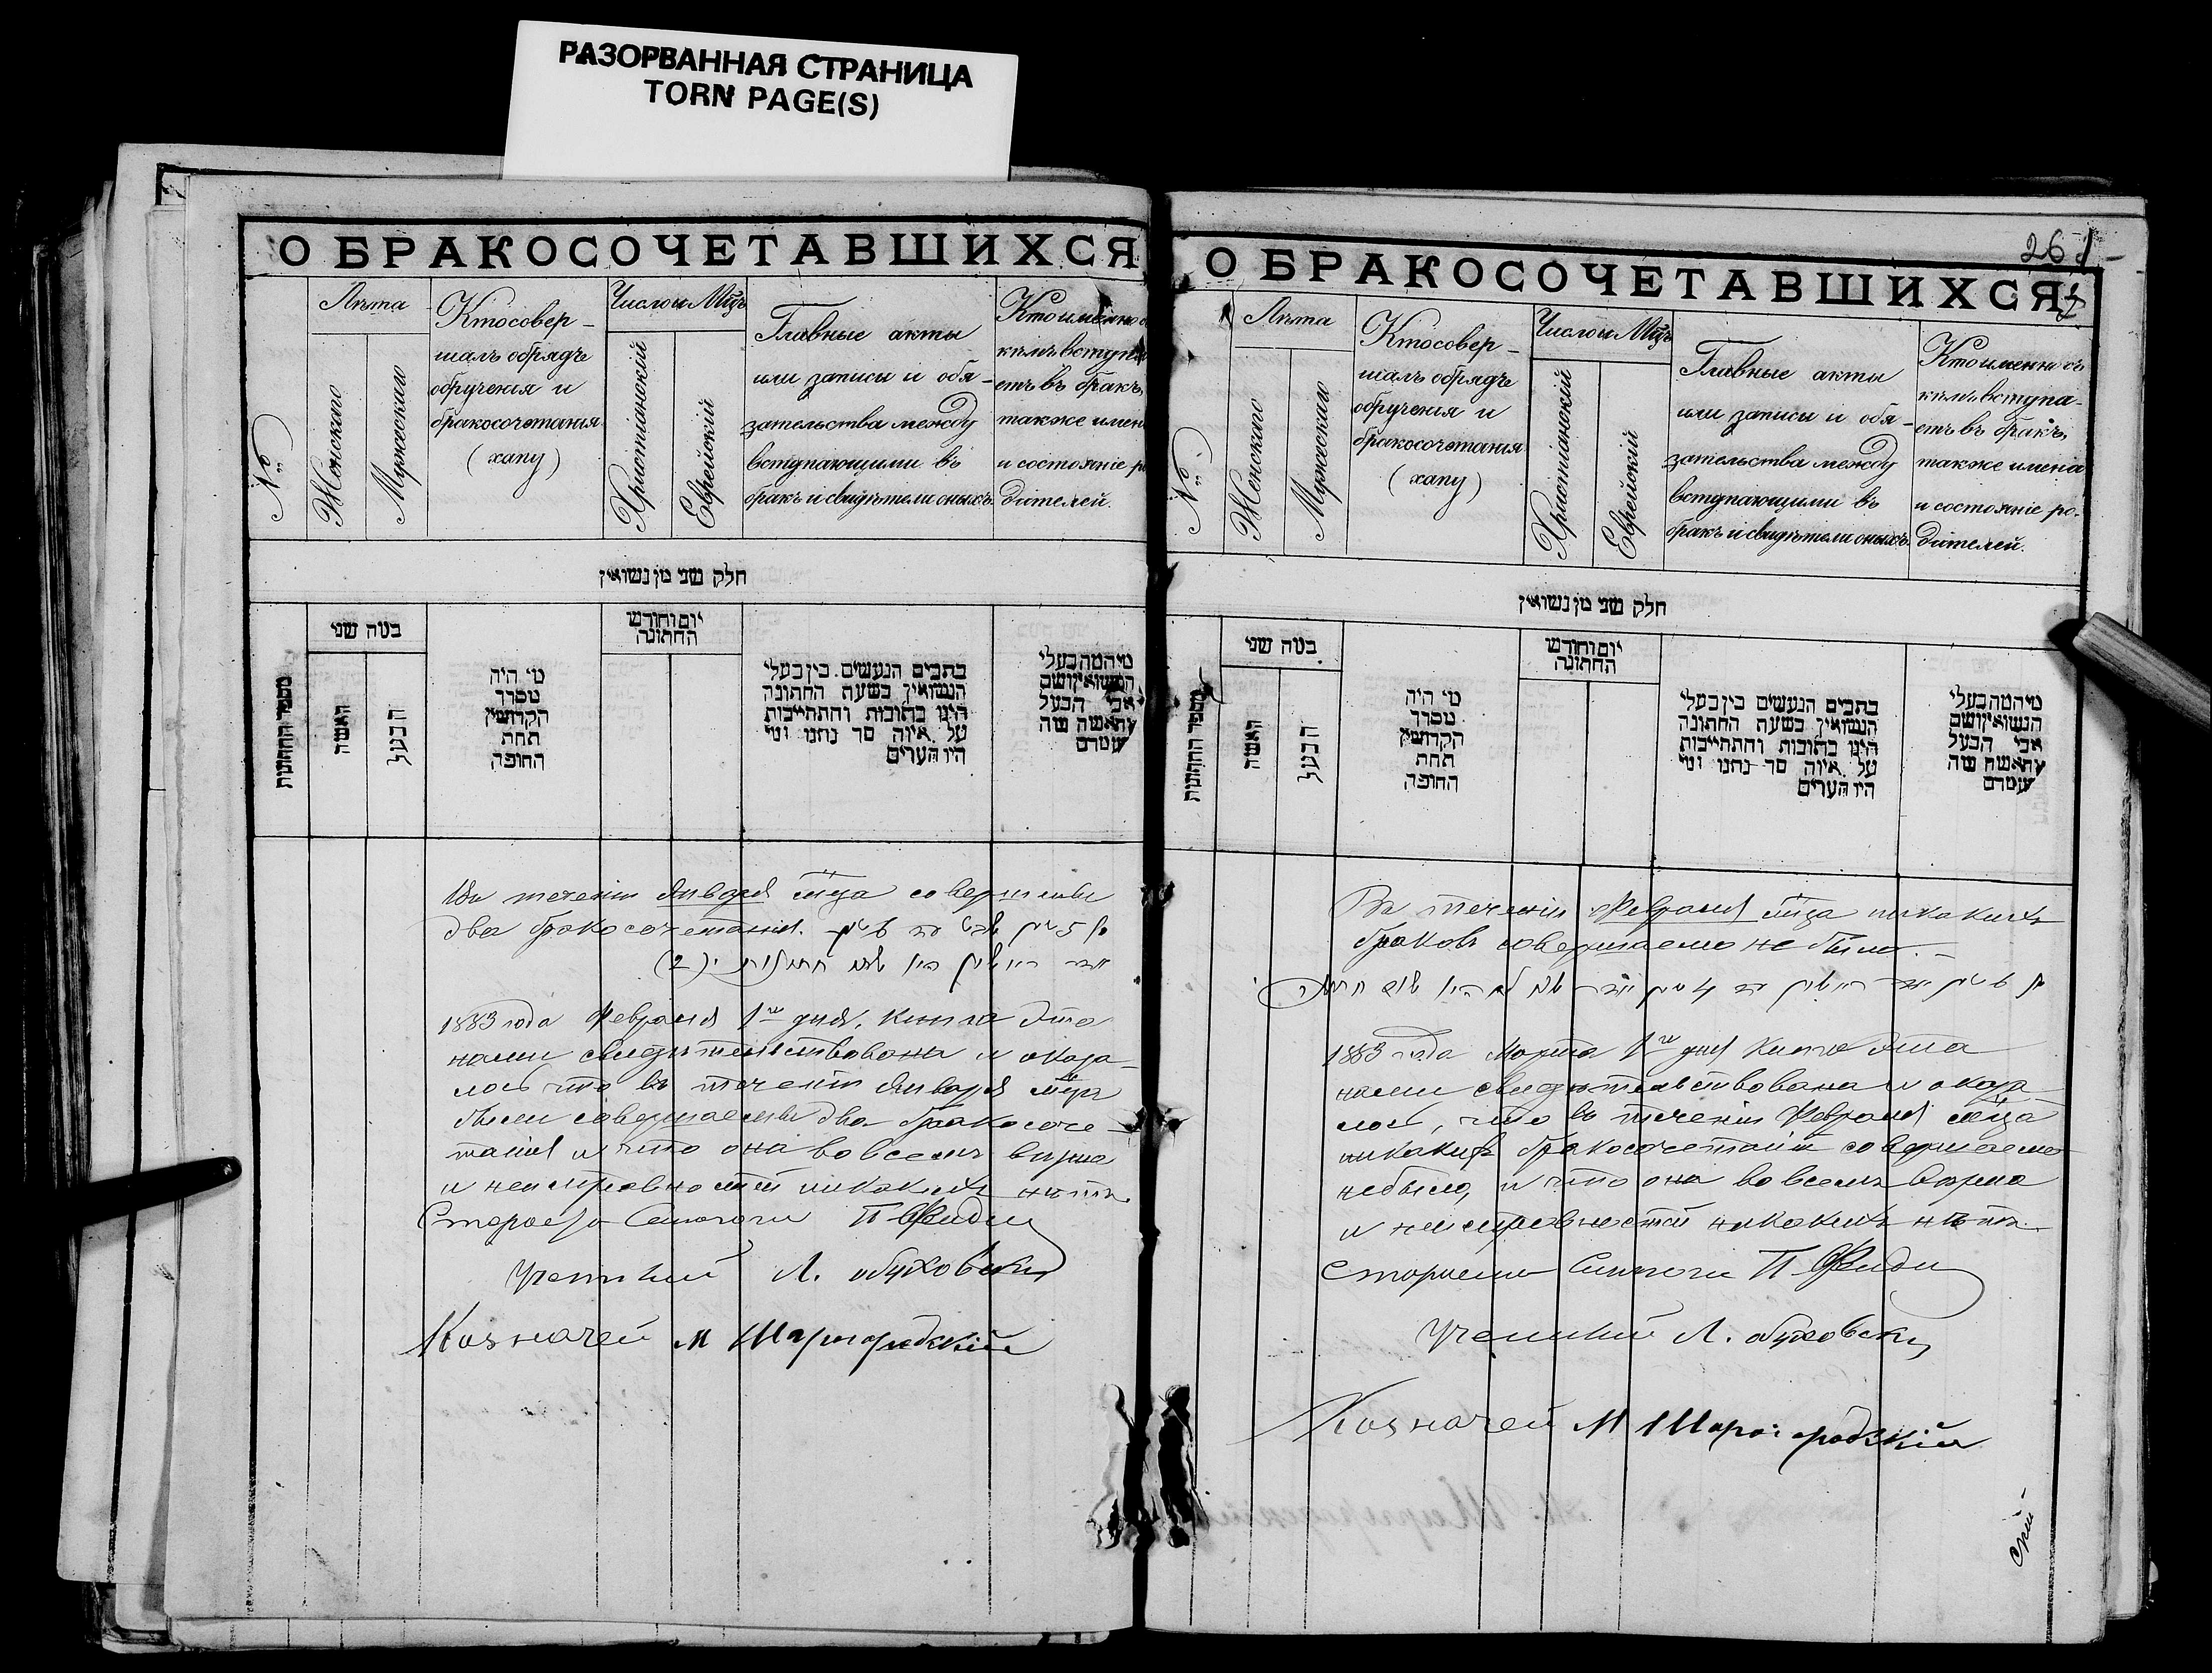 РАЗОРВАННАЯ СТРАНИЦА
TORN PAGE(S)
О БРАКОСОЧЕТАВШИХСЯ
№
Лѣта
Женскаго
Мужескаго
Кто совер-
шалъ обрядъ
обрученія и
бракосочетанія
(хапу)
Число и Мцъ
Христіанскій
Еврейскій
Главные акты
или записи и обя-
зательства между
вступающими въ
бракъ и свидѣтели оныхъ.
Кто именно
кѣмъ вступа
етъ въ бракъ,
также имен
и состояніе р
дителей.
חלק שני מן נשואין
מספר החתונות
כמה שני
האשה
הבעל
מי היה
מסדר
הקדושין
תחת
החופה
יום וחודש
החתונה
כתבים הנעשים בין בעלי
הנשואין בשעת החתונה
היינו כתובות והתחייבות
על איזה סך נתנו ומי
היו העדים
מי המה בעלי
הנשואין ושם
אבי הבעל
והאשה ומה
עסקם
Въ теченіи Января мца совершены
два бракосочетанія.
(2)
1883 года Февраля 1го дня, книга эта
нами свидѣтельствована и оказа-
лось что въ теченіи Января мца
были совершаемы два бракосоче-
танія и что она во всемъ вѣрна
и неисправностей никакихъ нѣтъ.
Староста Синагоги П.
Ученный Л. Обуховски
Казначей М Шаргородскій
261
О БРАКОСОЧЕТАВШИХСЯ
№
Лѣта
Женскаго
Мужескаго
Кто совер-
шалъ обрядъ
обрученія и
бракосочетанія
(хапу)
Число и Мцъ
Христіанскій
Еврейскій
Главные акты
или записи и обя-
зательства между
вступающими въ
бракъ и свидѣтели оныхъ.
Кто именно съ
кѣмъ вступа-
етъ въ бракъ,
также имена
и состояніе ро-
дителей.
חלק שני מן נשואין
מספר החתונות
כמה שני
האשה
הבעל
מי היה
מסדר
הקדושין
תחת
החופה
יום וחודש
החתונה
כתבים הנעשים בין בעלי
הנשואין בשעת החתונה
היינו כתובות והתחייבות
על איזה סך נתנו ומי
היו העדים
מי המה בעלי
הנשואין ושם
אבי הבעל
והאשה ומה
עסקם
Въ теченіи Февраля мца никакихъ
браковъ совершаемо не было.
1883 года Марта 1го дня книга эта
нами свидѣтельствована и оказа-
лось, что въ теченіи Февраля мца
никакихъ бракосочетаній совершаемо
небыло, и что она во всемъ вѣрна
и неисправностей никакихъ нѣтъ.
Староста Синагоги П.
Ученный Л. Обуховски
Казначей М Шаргородскій